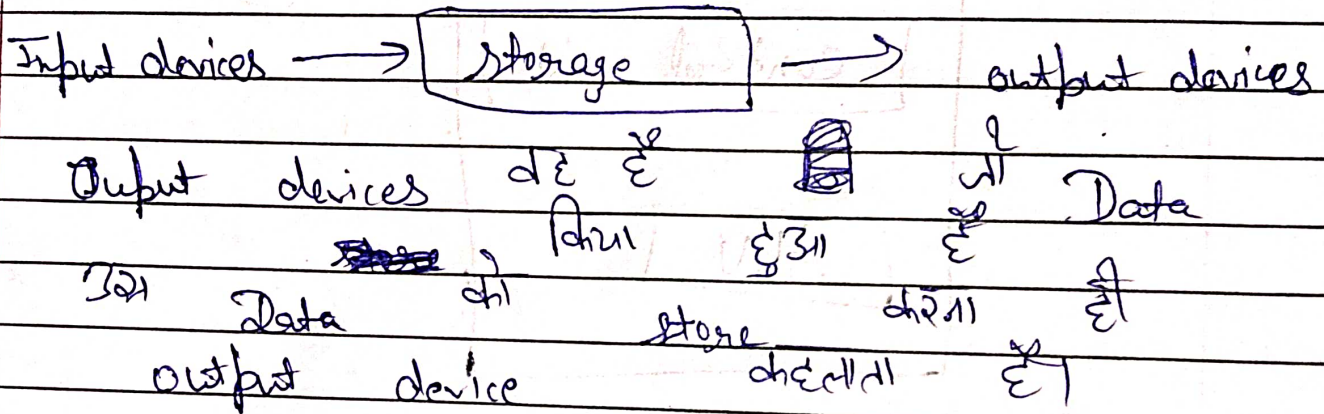 Input devices → storage → output devices
Ouput devices वह हैं जो Data
किया हुआ हैं
उस Data को store करना ही
output device कहलाता हैं।